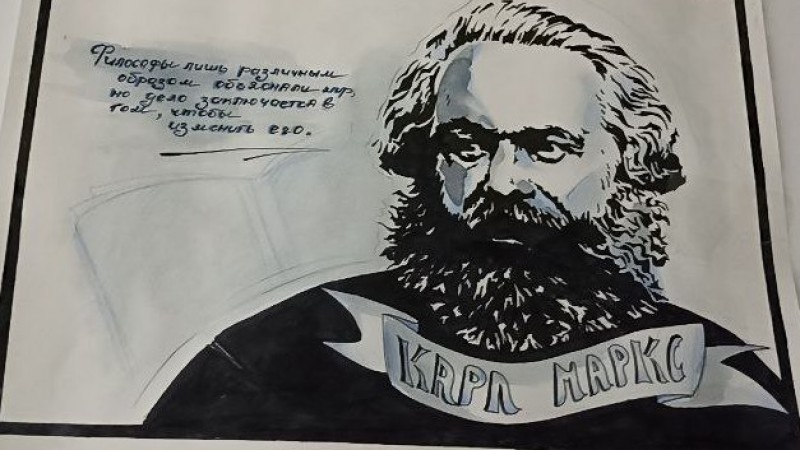 Философы лишь различным
образом объясняли мир,
но дело заключается в
том, чтобы
изменить его.
КАРЛ МАРКС